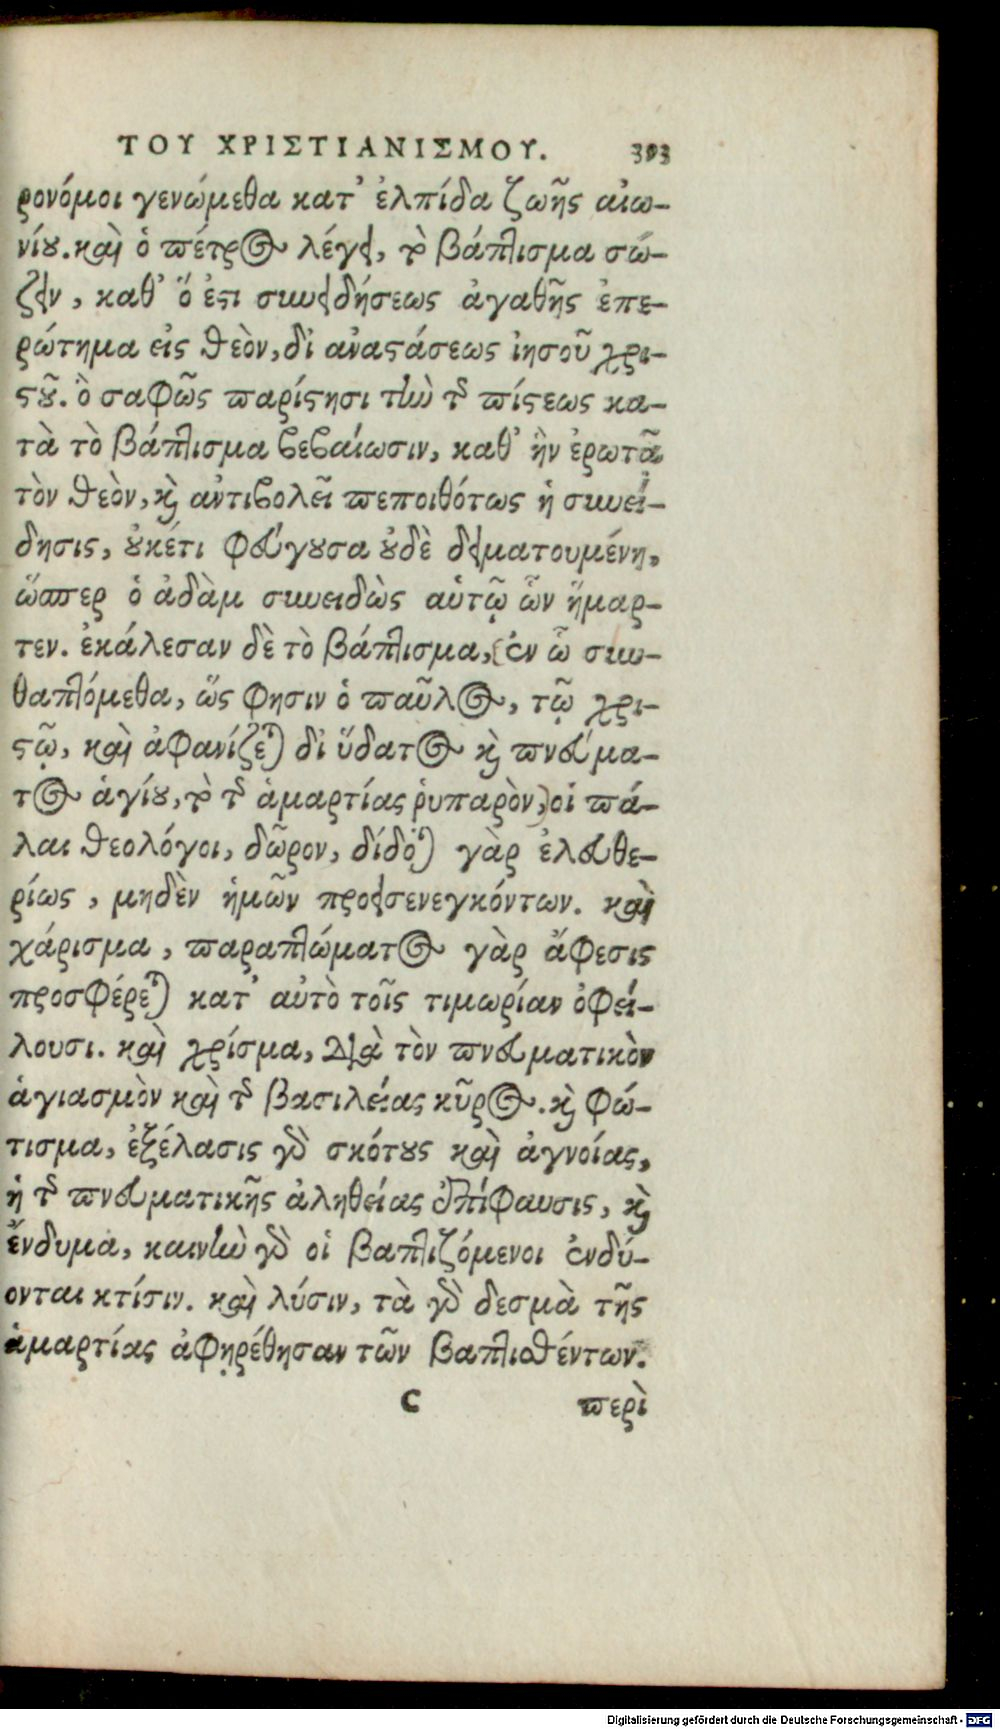 ΤΟΥ ΧΡΙΣΤΙΑΝΙΣΜΟΥ. 393
ρονόμοι γενώμεθα κατ' ἐλπίδα ζωῆς αἰω-
νίου. καὶ ὁ πέτρος λέγει, τὸ βάπτισμα σώ-
ζειν, καθ' ὅ ἐστι συνειδήσεως ἀγαθῆς ἐπε-
ρώτημα εἰς θεὸν, δι ἀναστάσεως ἰησοῦ χρι-
στοῦ. ὃ σαφῶς παρίστησι τὴν τῆς πίστεως κα-
τὰ τὸ βάπτισμα βεβαίωσιν, καθ' ἣν ἐρωτᾷ
τὸν θεὸν, καὶ ἀντιβολεῖ πεποιθότως ἡ συνεί-
δησις, οὐκέτι φεύγουσα οὐδὲ δειματουμένη,
ὥσπερ ὁ ἀδὰμ συνειδὼς αὑτῷ ὧν ἥμαρ-
τεν. ἐκάλεσαν δὲ τὸ βάπτισμα, (ἐν ὧ συν-
θαπτόμεθα, ὥς φησιν ὁ παῦλος, τῷ χρι-
στῷ, καὶ ἀφανίζεται δι ὕδατος καὶ πνεύμα-
τος ἁγίου, τὸ τῆς ἁμαρτίας ῥυπαρὸν,) οἱ πά-
λαι θεολόγοι, δῶρον, δίδοται γὰρ ἐλευθε-
ρίως, μηδὲν ἡμῶν προεισενεγκόντων. καὶ
χάρισμα, παραπτώματος γὰρ ἄφεσις
προσφέρεται κατ' αὐτὸ τοῖς τιμωρίαν ὀφεί-
λουσι. καὶ χρίσμα, διὰ τὸν πνευματικὸν
ἁγιασμὸν καὶ τῆς βασιλείας κῦρος. καὶ φώ-
τισμα, ἐξέλασις γὰρ σκότους καὶ ἀγνοίας,
ἡ τῆς πνευματικῆς ἀληθείας ἐπίφαυσις, καὶ
ἔνδυμα, καινὴν γὰρ οἱ βαπτιζόμενοι ἐνδύ-
ονται κτίσιν. καὶ λύσιν, τὰ γὰρ δεσμὰ τῆς
ἁμαρτίας ἀφῃρέθησαν τῶν βαπτισθέντων.
C περὶ
Digitalisierung gefördert durch die Deutsche Forschungsgemeinschaft - DFG